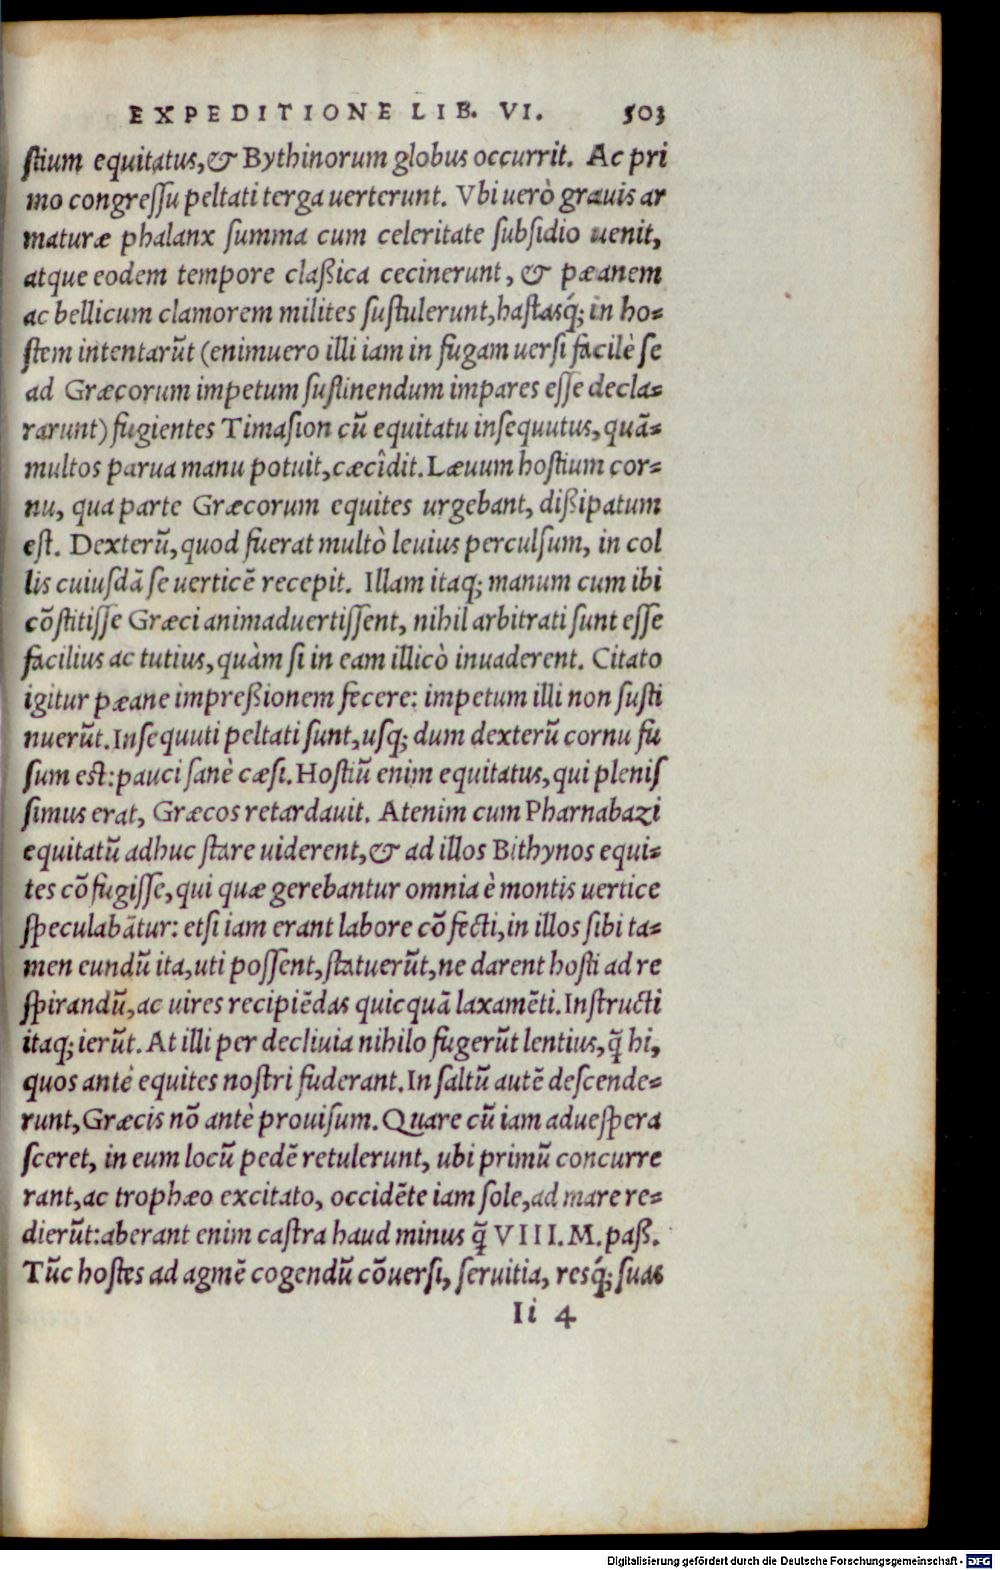 EXPEDITIONE LIB. VI. 503
ſtium equitatus, & Bythinorum globus occurrit. Ac pri
mo congreſſu peltati terga uerterunt. Vbi uerò grauis ar
maturæ phalanx ſumma cum celeritate ſubſidio uenit,
atque eodem tempore claßica cecinerunt, & pæanem
ac bellicum clamorem milites ſuſtulerunt, haſtasq́; in ho-
ſtem intentarũt (enimuero illi iam in fugam uerſi facilè ſe
ad Græcorum impetum ſuſtinendum impares eſſe decla-
rarunt) fugientes Timaſion cũ equitatu inſequutus, quã-
multos parua manu potuit, cæcîdit. Læuum hoſtium cor-
nu, qua parte Græcorum equites urgebant, dißipatum
eſt. Dexterũ, quod fuerat multò leuius perculſum, in col
lis cuiuſdã ſe uerticẽ recepit. Illam itaq; manum cum ibi
cõſtitiſſe Græci animaduertiſſent, nihil arbitrati ſunt eſſe
facilius ac tutius, quàm ſi in eam illicò inuaderent. Citato
igitur pæane impreßionem fecere: impetum illi non ſuſti
nuerũt. Inſequuti peltati ſunt, uſq; dum dexterũ cornu fu
ſum eſt: pauci ſanè cæſi. Hoſtiũ enim equitatus, qui pleniſ
ſimus erat, Græcos retardauit. Atenim cum Pharnabazi
equitatũ adhuc ſtare uiderent, & ad illos Bithynos equi-
tes cõfugiſſe, qui quæ gerebantur omnia è montis uertice
ſpeculabãtur: etſi iam erant labore cõfecti, in illos ſibi ta-
men eundũ ita, uti poſſent, ſtatuerũt, ne darent hoſti ad re
ſpirandũ, ac uires recipiẽdas quicquã laxamẽti. Inſtructi
itaq; ierũt. At illi per decliuia nihilo fugerũt lentius, q̃ hi,
quos antè equites noſtri fuderant. In ſaltũ autẽ deſcende-
runt, Græcis nõ antè prouiſum. Quare cũ iam adueſpera
ſceret, in eum locũ pedẽ retulerunt, ubi primũ concurre
rant, ac trophæo excitato, occidẽte iam ſole, ad mare re-
dierũt: aberant enim caſtra haud minus q̃ VIII. M. paß.
Tũc hoſtes ad agmẽ cogendũ cõuerſi, ſeruitia, resq́; ſuas
Ii 4
Digitalisierung gefördert durch die Deutsche Forschungsgemeinschaft - DFG